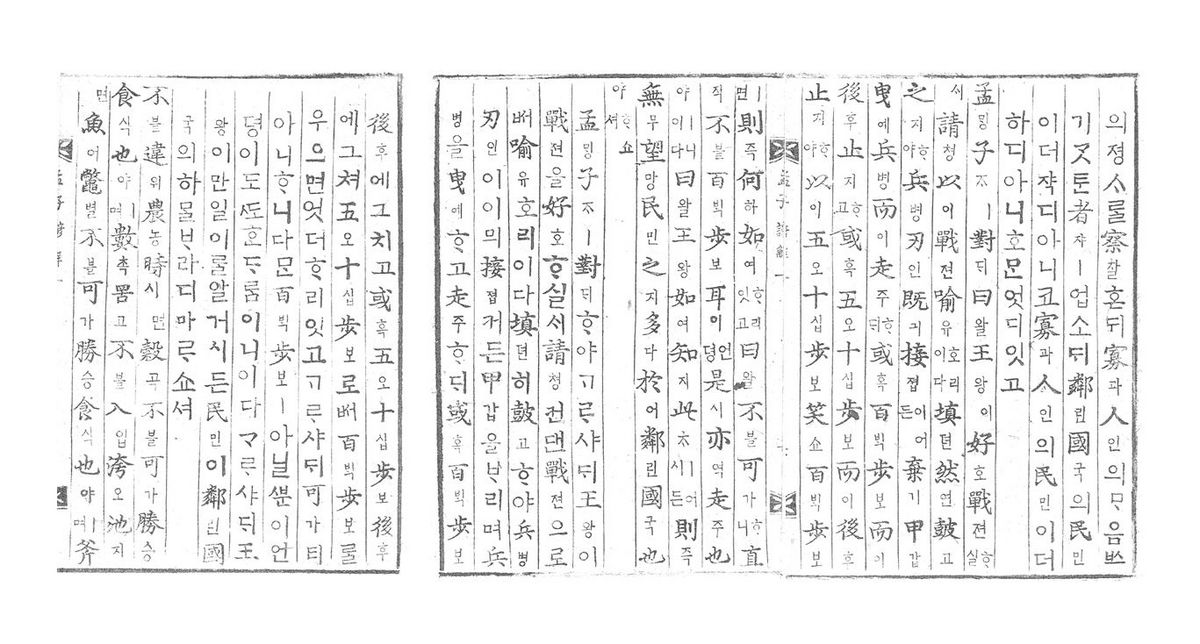 의졍ᄉᆞᄅᆞᆯ察찰혼ᄃᆡ寡과人인의ᄆᆞᄋᆞᆷᄡᅳ
기ᄀᆞᆮᄐᆞᆫ者쟈ㅣ업소ᄃᆡ鄰린國국의民민
이더쟉디아니코寡과人인의民민이더
하디아니호ᄆᆞᆫ엇디잇고
孟ᄆᆡᆼ子ᄌᆞㅣ對ᄃᆡ曰왈王왕이好호戰젼ᄒᆞ실
ᄉᆡ請쳥以이戰젼喩유호리이다塡뎐然연鼓고
之지ᄒᆞ야兵병刃인既긔接졉이어든棄기甲갑
曳예兵병而이走주호ᄃᆡ或혹百ᄇᆡᆨ步보而이
後후止지ᄒᆞ고或혹五오十십步보而이後후
止지ᄒᆞ야以이五오十십步보笑쇼百ᄇᆡᆨ步보
孟子諺解一
ㅣ면則즉何하如여ᄒᆞ리잇고曰왈不블可가ᄒᆞ니直
직不블百ᄇᆡᆨ步보耳이언뎡是시亦역走주也
야ㅣ니이다曰왈王왕如여知지此ᄎᆞㅣ시어든則즉
無무望망民민之지多다於어鄰린國국也
야ᄒᆞ쇼셔
孟ᄆᆡᆼ子ᄌᆞㅣ對ᄃᆡᄒᆞ야ᄀᆞᄅᆞ샤ᄃᆡ王왕이
戰젼을好호ᄒᆞ실ᄉᆡ請쳥컨댄戰젼으로
ᄡᅥ喩유호리이다塡뎐히鼓고ᄒᆞ야兵병
刃인이이믜接졉거든甲갑을ᄇᆞ리며兵
병을曳예ᄒᆞ고走주호ᄃᆡ或혹百ᄇᆡᆨ步보
後후에그치고或혹五오十십步보後후
에그쳐五오十십步보로ᄡᅥ百ᄇᆡᆨ步보ᄅᆞᆯ
우으면엇더ᄒᆞ리잇고ᄀᆞᄅᆞ샤ᄃᆡ可가티
아니ᄒᆞ니다ᄆᆞᆫ百ᄇᆡᆨ步보ㅣ아닐ᄲᅮᆫ이언
뎡이도ᄯᅩ호ᄃᆞᄅᆞᆷ이니이다ᄀᆞᄅᆞ샤ᄃᆡ王
왕이만일이ᄅᆞᆯ알거시든民민이鄰린國
국의하믈ᄇᆞ라디마ᄅᆞ쇼셔
不블違위農농時시면穀곡不블可가勝승
食식也야ㅣ며數촉罟고不블入입洿오池지
면魚어鼈별不블可가勝승食식也야ㅣ며斧